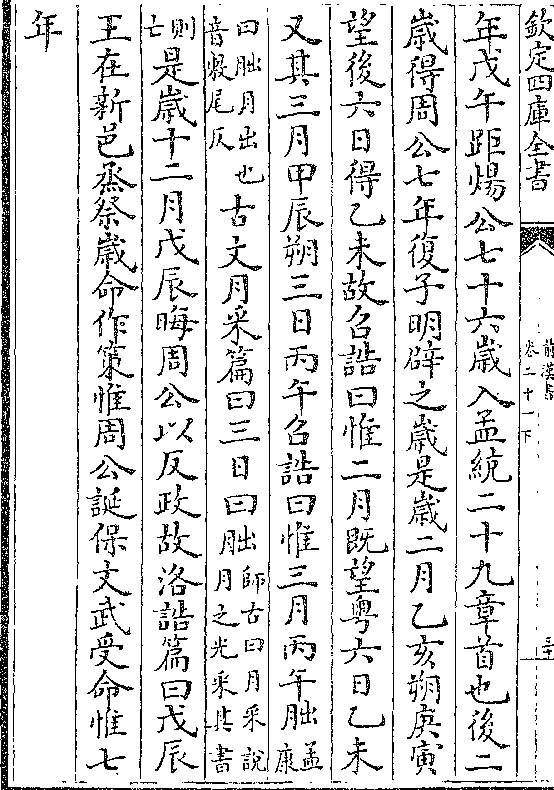 欽定四庫全書
前漢書
卷二十一下
年戊午距煬公七十六歲入孟統二十九章首也後二
歲得周公七年復子明辟之歲是歲二月乙亥朔庚寅
望後六日得乙未故召誥曰惟二月既望粵六日乙未
又其三月甲辰朔三日丙午召誥曰惟三月丙午朏孟康
曰朏月出也音敷尾反古文月采篇曰三日曰朏師古曰月采說月之光采其書
則亡是歲十二月戊辰晦周公以反政故洛誥篇曰戊辰
王在新邑烝祭歲命作策惟周公誕保文武受命惟七
年